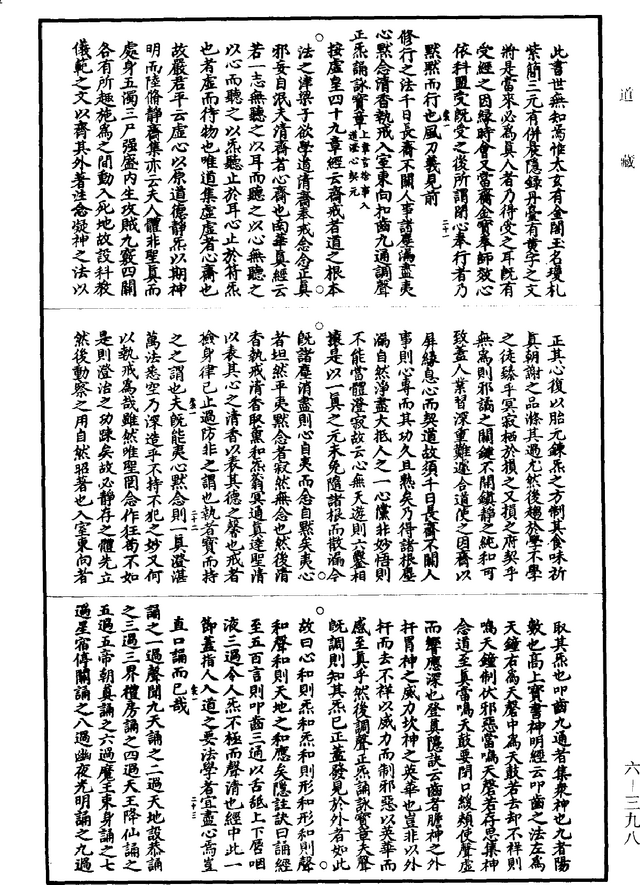 道藏
此書世無知焉惟太玄有金閣玉名瓊札
紫簡三元有併度隱錄丹臺有黃字之文
將是當來必為真人者乃得受之耳既有
受經之因緣時會又當齎金寶奉師效心
依科盟受既受之後所謂閉心奉行者乃
默默而行也風刀義見前
二十一
修行之法千日長齋不關人事諸塵漏盡夷
心默念清香執戒入室東向扣齒九通調聲
正炁誦詠寶章
按虛皇四十九章經云齋戒者道之根本
法之津梁子欲學道清齋奉戒念念正真
邪妄自泯夫清齋者心齋也南華真經云
若一志無聽之以耳而聽之以心無聽之
以心而聽之以炁聽止於耳心止於符炁
也者虛而待物也唯道集虛虛者心齋也
故嚴君平云虛心以原道德靜炁以期神
明而陸脩靜齋集亦云夫人體非聖真而
處身五濁三尸强盛內生攻賊九竅四關
各有所趍施為之間動入死地故設科教
儀範之文以齋其外著注念凝神之法以
正其心復以胎元鍊炁之方制其食味祈
真朝謝之品滌其過尤然後趍於學不學
之徒臻乎冥寂栖於損之又損之府契乎
無為則邪譎之關鍵不開鎮靜之純和可
致蓋人業習深重難遽合道使之因齋以
屏緣息心而契道故須千日長齋不關人
事則心專而其功久且熟矣乃得諸根塵
漏自然淨盡大抵人之一心儻非妙悟則
不能當體澄寂故云心無天遊則六鑿相
攘是以一真之元未免隨諸根而散漏今
既諸塵消盡則心自夷而念自默矣夷心
者坦然平夷默念者寂然無念也然後清
香執戒清香取薰和炁蓊冥通真達聖清
以表其心之清香以表其德之馨也戒者
檢身律已止過防非之謂也執者實而持
之之謂也夫既能夷心默念則一真澄湛
二十二
萬法悉空乃深造乎不持不犯之妙又何
以執戒為哉雖然唯聖罔念作狂苟不如
是則澄治之功踈矣故必靜存之體先立
然後動察之用自然昭著也入室東向者
取其炁也叩齒九通者集衆神也九者陽
數也高上寶書神明經云叩齒之法左為
天鐘右為天磬中為天鼓若去却不祥則
鳴天鐘制伏邪惡當鳴天磬若存思集神
念道至真當鳴天鼓要閉口緩頰使聲虛
而響應深也登真隱訣云齒者膽神之外
扞胃神之威力坎神之英華也豈非以外
扞而去不祥以威力而制邪惡以英華而
感至真乎然後調聲正炁誦詠寶章夫聲
既調則知其炁已正蓋發見於外者如此
故曰心和則炁和炁和則形和形和則聲
和聲和則天地之和應矣隱註訣曰誦經
至五百言則叩齒三通以舌舐上下唇咽
液三過令人炁不極而聲清也經中此一
節蓋指人入道之要法學者宜盡心焉豈
直口誦而已哉
二十三
誦之一過聲聞九天誦之二過天地設恭誦
之三過三界禮房誦之四過天王降仙誦之
五過五帝朝真誦之六過魔王束身誦之七
過星宿停關誦之八過幽夜光明誦之九過
六—三九八